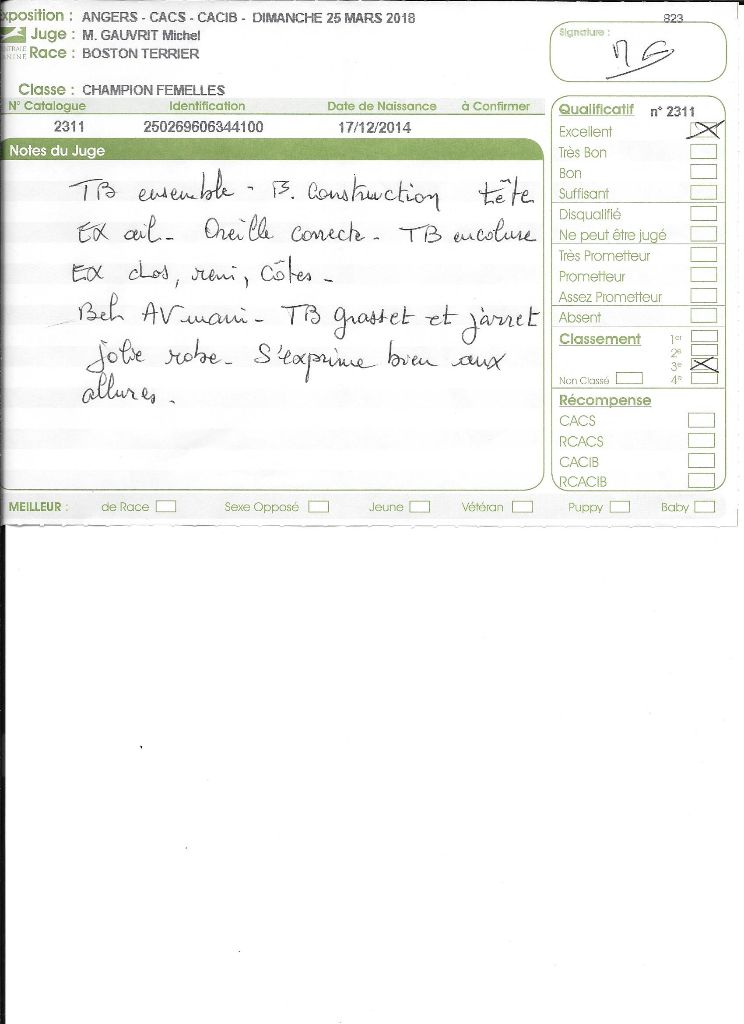 xposition : ANGERS - CACS - CACIB - DIMANCHE 25 MARS 2018
823
Juge : M. GAUVRIT Michel
Race : BOSTON TERRIER
Signature :
MG
Classe : CHAMPION FEMELLES
N° Catalogue Identification Date de Naissance à Confirmer
2311 250269606344100 17/12/2014
Notes du Juge
TB ensemble - B. Construction tête
EX œil - Oreille correcte - TB encolure
EX dos, rein, Côtes -
Belle AV main - TB grasset et jarret
jolie robe - S'exprime bien aux
allures -
Qualificatif n° 2311
Excellent
Très Bon
Bon
Suffisant
Disqualifié
Ne peut être jugé
Très Prometteur
Prometteur
Assez Prometteur
Absent
Classement 1er
2e
3e
Non Classé 4e
Récompense
CACS
RCACS
CACIB
RCACIB
MEILLEUR : de Race Sexe Opposé Jeune Vétéran Puppy Baby